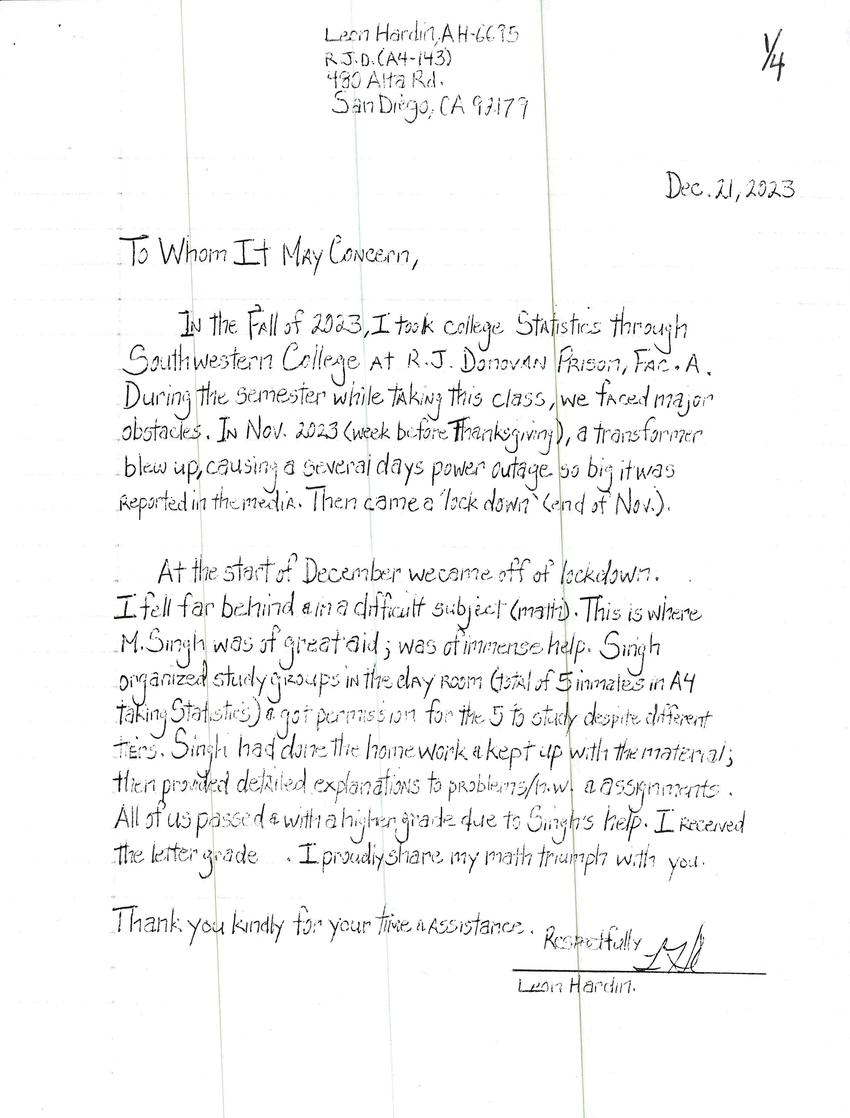 Leon Hardin, AH-6695
R.J.D. (A4-143)
480 Alta Rd.
San Diego, CA 92179
1/4
Dec. 21, 2023
To Whom It May Concern,
In the Fall of 2023, I took college Statistics through
Southwestern College at R.J. Donovan Prison, Fac. A.
During the semester while taking this class, we faced major
obstacles. In Nov. 2023 (week before Thanksgiving), a transformer
blew up, causing a several days power outage so big it was
reported in the media. Then came a 'lock down' (end of Nov.).
At the start of December we came off of lockdown.
I fell far behind & in a difficult subject (math). This is where
M. Singh was of great aid; was of immense help. Singh
organized study groups in the day room (total of 5 inmates in A4
taking Statistics) & got permission for the 5 to study despite different
tiers. Singh had done the homework & kept up with the material;
then provided detailed explanations to problems/h.w. & assignments.
All of us passed & with a higher grade due to Singh's help. I received
the letter grade . I proudly share my math triumph with you.
Thank you kindly for your time & assistance.
Respectfully
Leon Hardin.